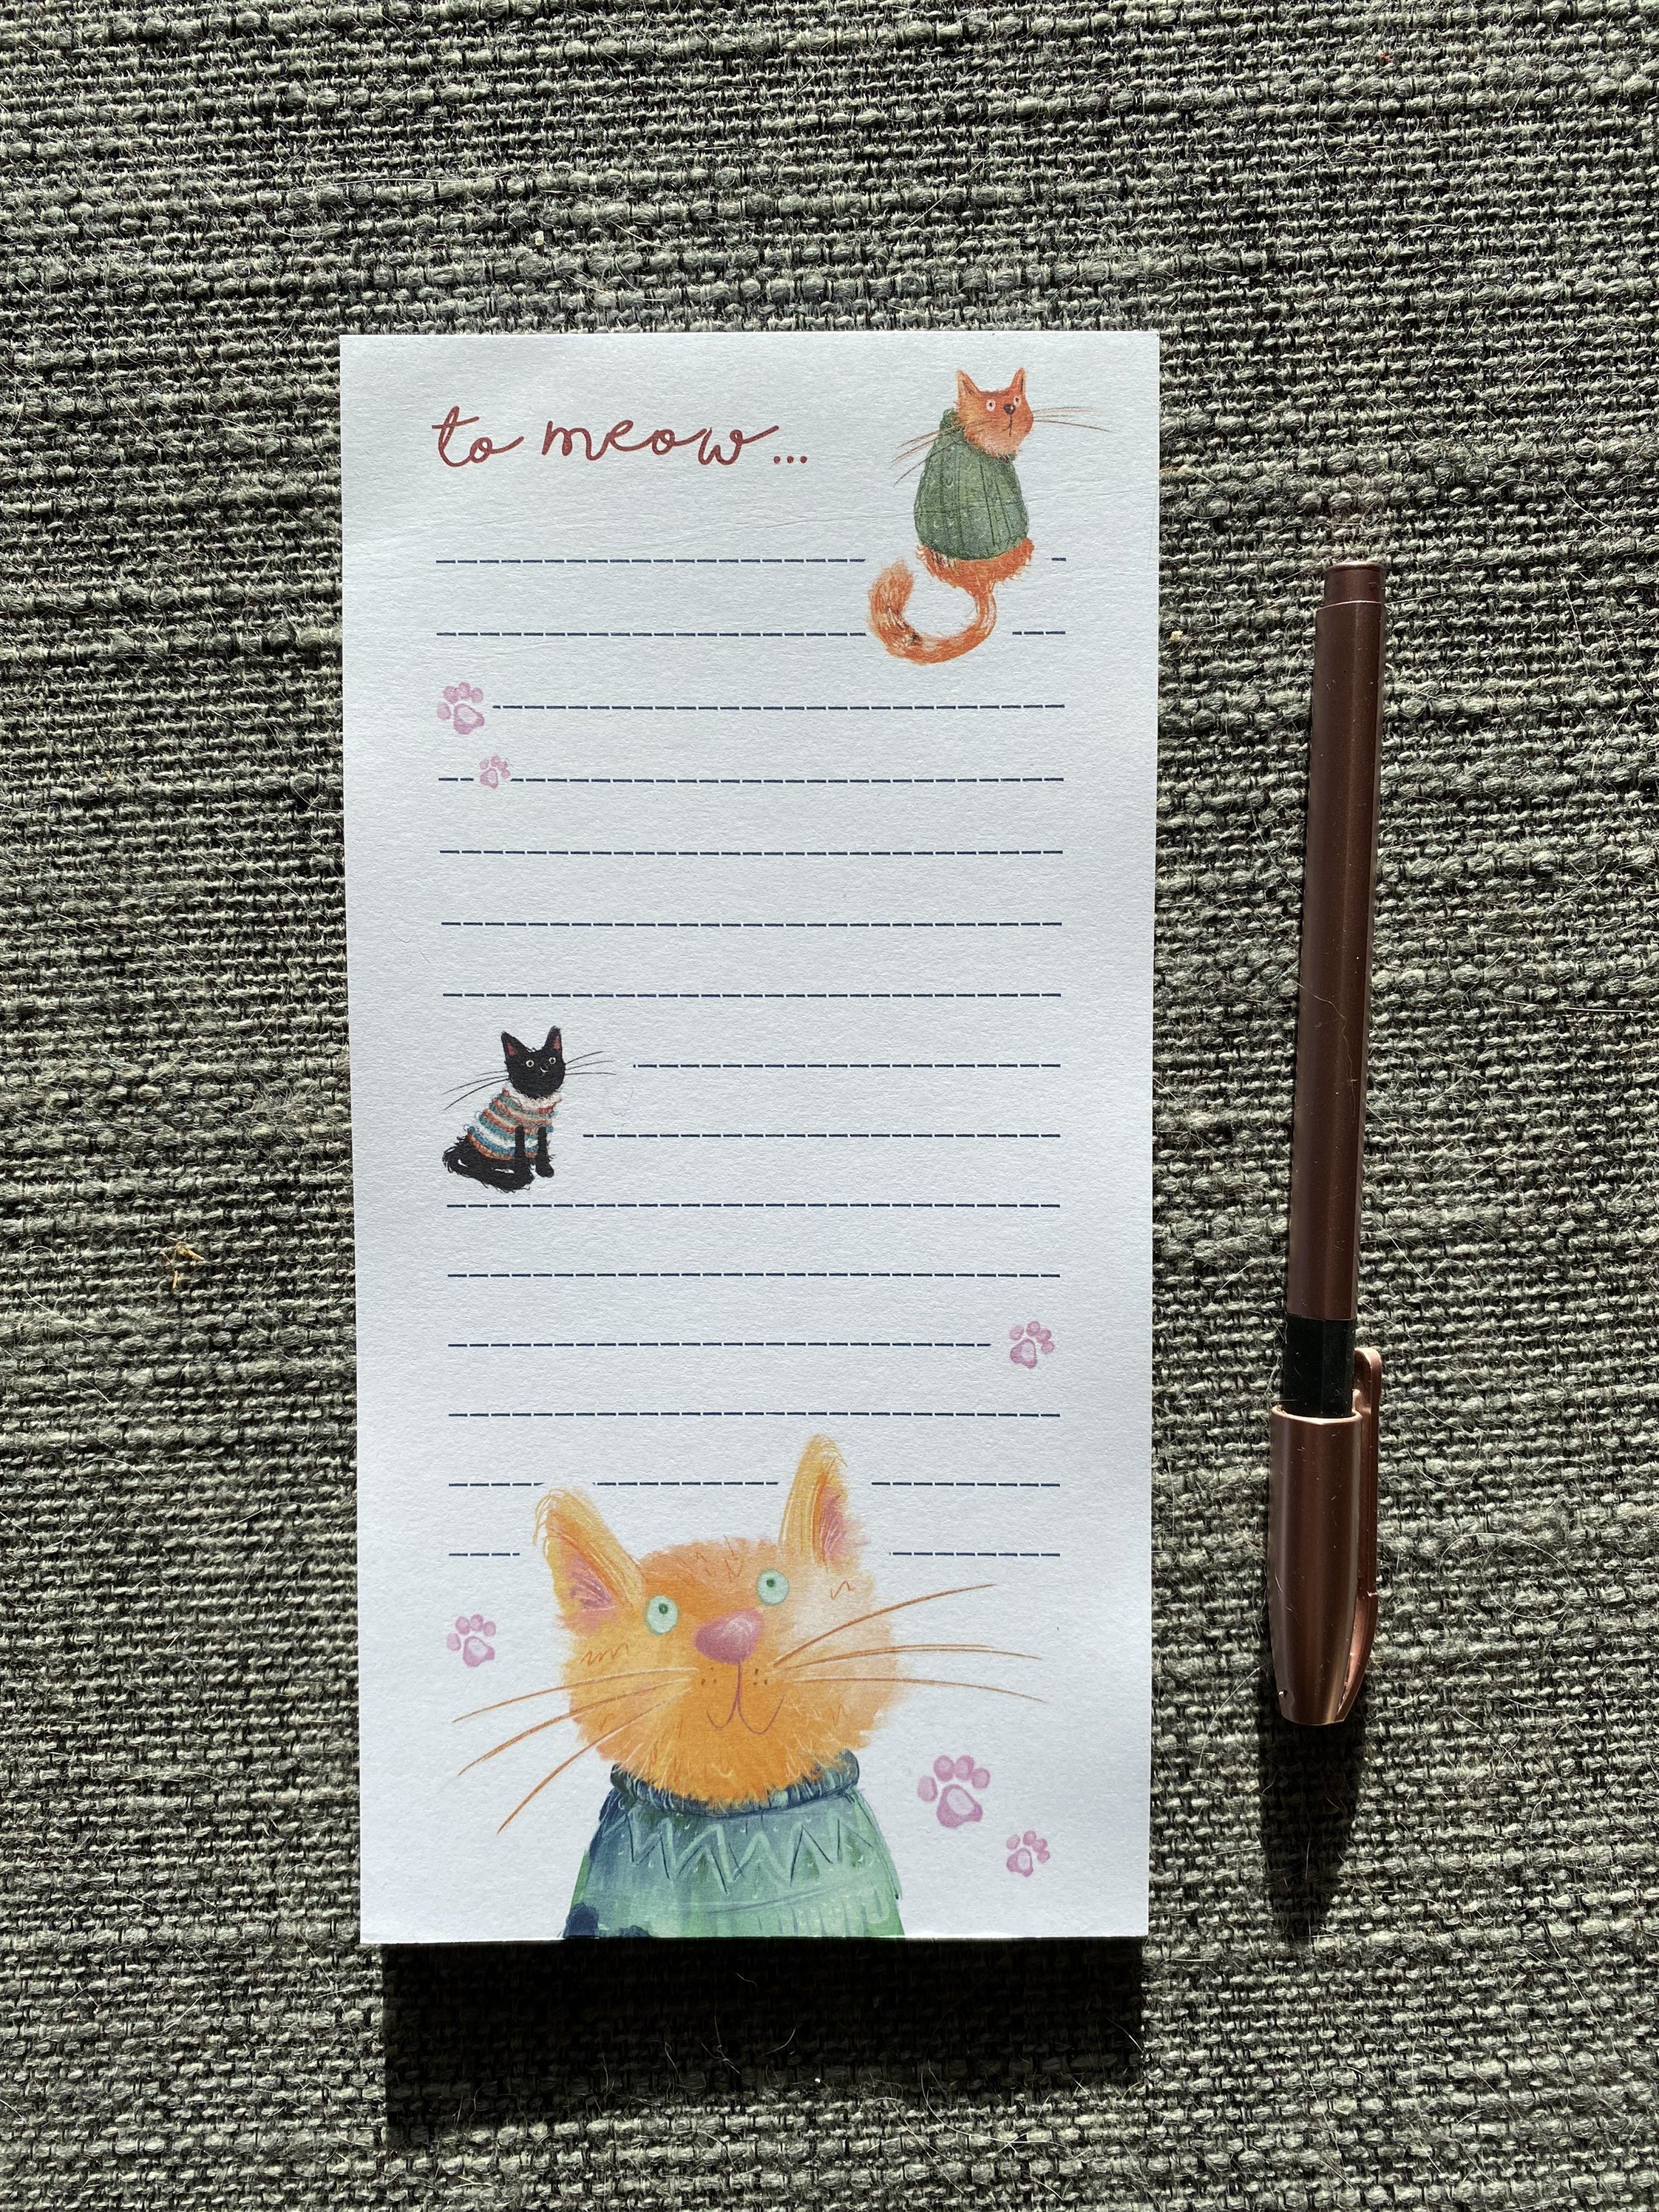 to meow...